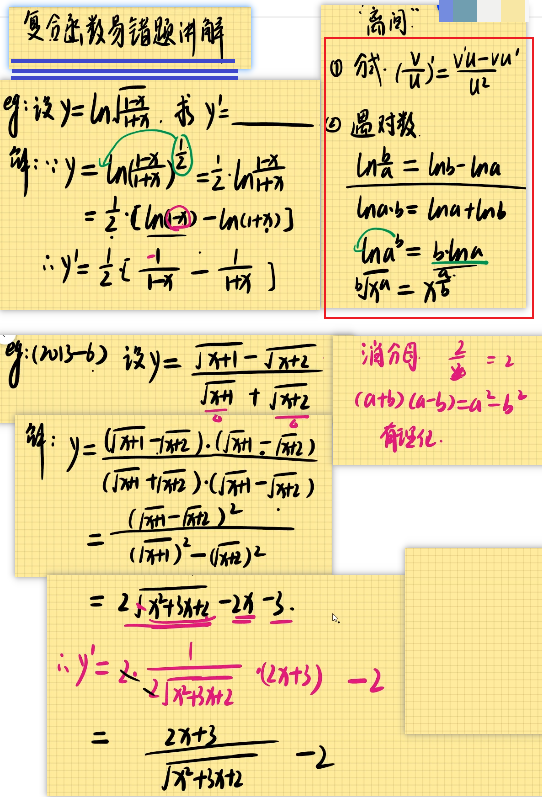 复合函数易错题讲解
eg: 设 y = ln√((1-x)/(1+x)). 求 y' = ______
解: ∵ y = ln((1-x)/(1+x))^(1/2) = 1/2·ln (1-x)/(1+x)
= 1/2·[ln(1-x) - ln(1+x)]
∴ y' = 1/2 [ -1/(1-x) - 1/(1+x) ]
"离间"
① 分式. (v/u)' = (v'u - vu')/u²
② 遇对数
ln b/a = lnb - lna
lna·b = lna + lnb
lna^b = b·lna
^b√(x^a) = x^(a/b)
eg: (2013-6) 设 y = (√(x+1) - √(x+2))/(√(x+1) + √(x+2))
消分母 2/1 = 2
(a+b)(a-b) = a² - b²
有理化.
解: y = ((√(x+1) - √(x+2))·(√(x+1) - √(x+2)))/((√(x+1) + √(x+2))·(√(x+1) - √(x+2)))
= (√(x+1) - √(x+2))²/((√(x+1))² - (√(x+2))²)
= 2√(x²+3x+2) - 2x - 3.
∴ y' = 2· 1/(2√(x²+3x+2)) ·(2x+3) - 2
= (2x+3)/√(x²+3x+2) - 2